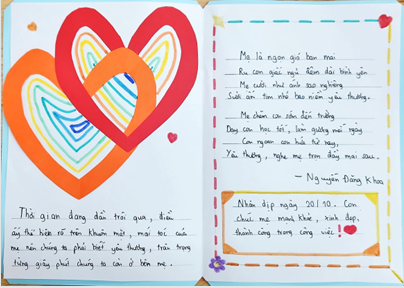 Thời gian đang dần trôi qua, điều
ấy thể hiện rõ trên khuôn mặt, mái tóc của
mẹ nên chúng ta phải biết yêu thương, trân trọng
từng giây phút chúng ta còn ở bên mẹ.
Mẹ là ngọn gió ban mai
Ru con giấc ngủ đêm dài bình yên
Mẹ cười như ánh sao nghiêng
Sưởi ấm tim nhỏ bao niềm yêu thương.
Mẹ chăm con sớm đến trường
Dạy con học tốt, làm gương mỗi ngày
Con ngoan con hứa từ nay,
Yêu thương, nghe mẹ trọn đời mai sau.
- Nguyễn Đăng Khoa
Nhân dịp ngày 20/10. Con
chúc mẹ mạnh khỏe, xinh đẹp,
thành công trong công việc!